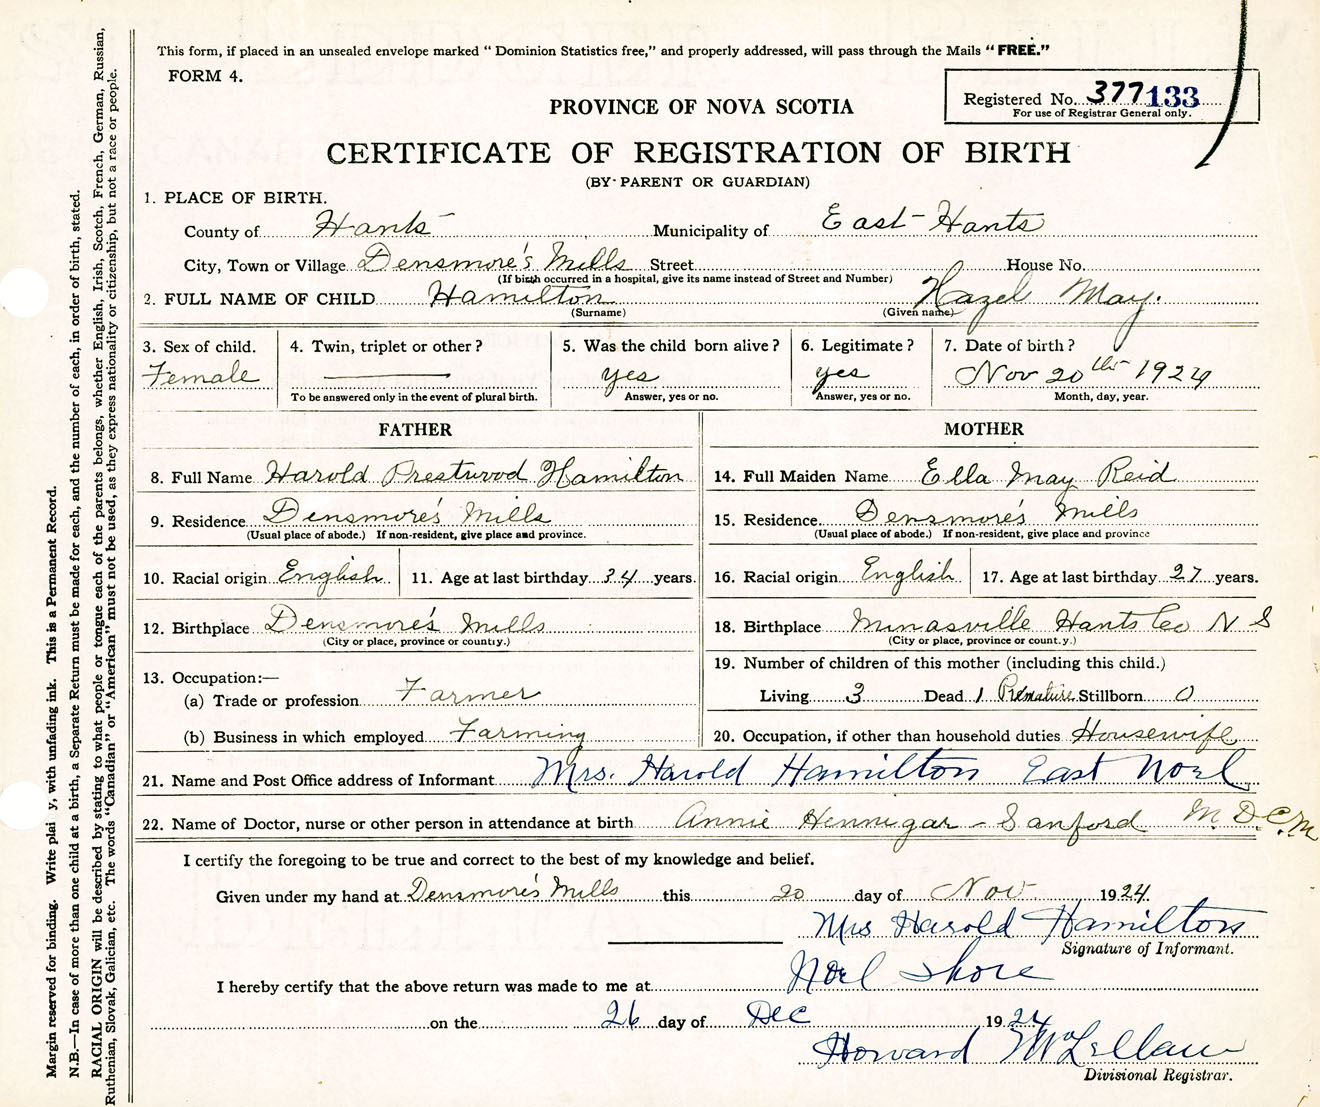 This form, if placed in an unsealed envelope marked "Dominion Statistics free," and properly addressed, will pass through the Mails "FREE."
FORM 4.
Registered No. 377133
For use of Registrar General only.
PROVINCE OF NOVA SCOTIA
CERTIFICATE OF REGISTRATION OF BIRTH
(BY PARENT OR GUARDIAN)
1. PLACE OF BIRTH.
County of Hants Municipality of East Hants
City, Town or Village Densmore's Mills Street House No.
(If birth occurred in a hospital, give its name instead of Street and Number)
2. FULL NAME OF CHILD Hamilton Hazel May.
(Surname) (Given name)
3. Sex of child. 4. Twin, triplet or other? 5. Was the child born alive? 6. Legitimate? 7. Date of birth?
Female yes yes Nov 20th 1924
To be answered only in the event of plural birth. Answer, yes or no. Answer, yes or no. Month, day, year.
FATHER MOTHER
8. Full Name Harold Prestwood Hamilton 14. Full Maiden Name Ella May Reid
9. Residence Densmore's Mills 15. Residence Densmore's Mills
(Usual place of abode.) If non-resident, give place and province. (Usual place of abode.) If non-resident, give place and province
10. Racial origin English 11. Age at last birthday 34 years. 16. Racial origin English 17. Age at last birthday 27 years.
12. Birthplace Densmore's Mills 18. Birthplace Minasville Hants Co N S
(City or place, province or country.) (City or place, province or country.)
19. Number of children of this mother (including this child.)
13. Occupation:—
(a) Trade or profession Farmer Living 3 Dead 1 Premature Stillborn 0
(b) Business in which employed Farming 20. Occupation, if other than household duties Housewife
21. Name and Post Office address of Informant Mrs. Harold Hamilton East Noel
22. Name of Doctor, nurse or other person in attendance at birth Annie Hennigar - Sanford M.D.C.M
I certify the foregoing to be true and correct to the best of my knowledge and belief.
Given under my hand at Densmore's Mills this 20 day of Nov 1924.
Mrs Harold Hamilton
Signature of Informant.
I hereby certify that the above return was made to me at Noel Shore
on the 26 day of Dec 1924
Howard McLellan
Divisional Registrar.
Margin reserved for binding. Write plai y, with unfading ink. This is a Permanent Record.
N.B.—In case of more than one child at a birth, a Separate Return must be made for each, and the number of each, in order of birth, stated.
RACIAL ORIGIN will be described by stating to what people or tongue each of the parents belongs, whether English, Irish, Scotch, French, German, Russian,
Ruthenian, Slovak, Galician, etc. The words "Canadian" or "American" must not be used, as they express nationality or citizenship, but not a race or people.